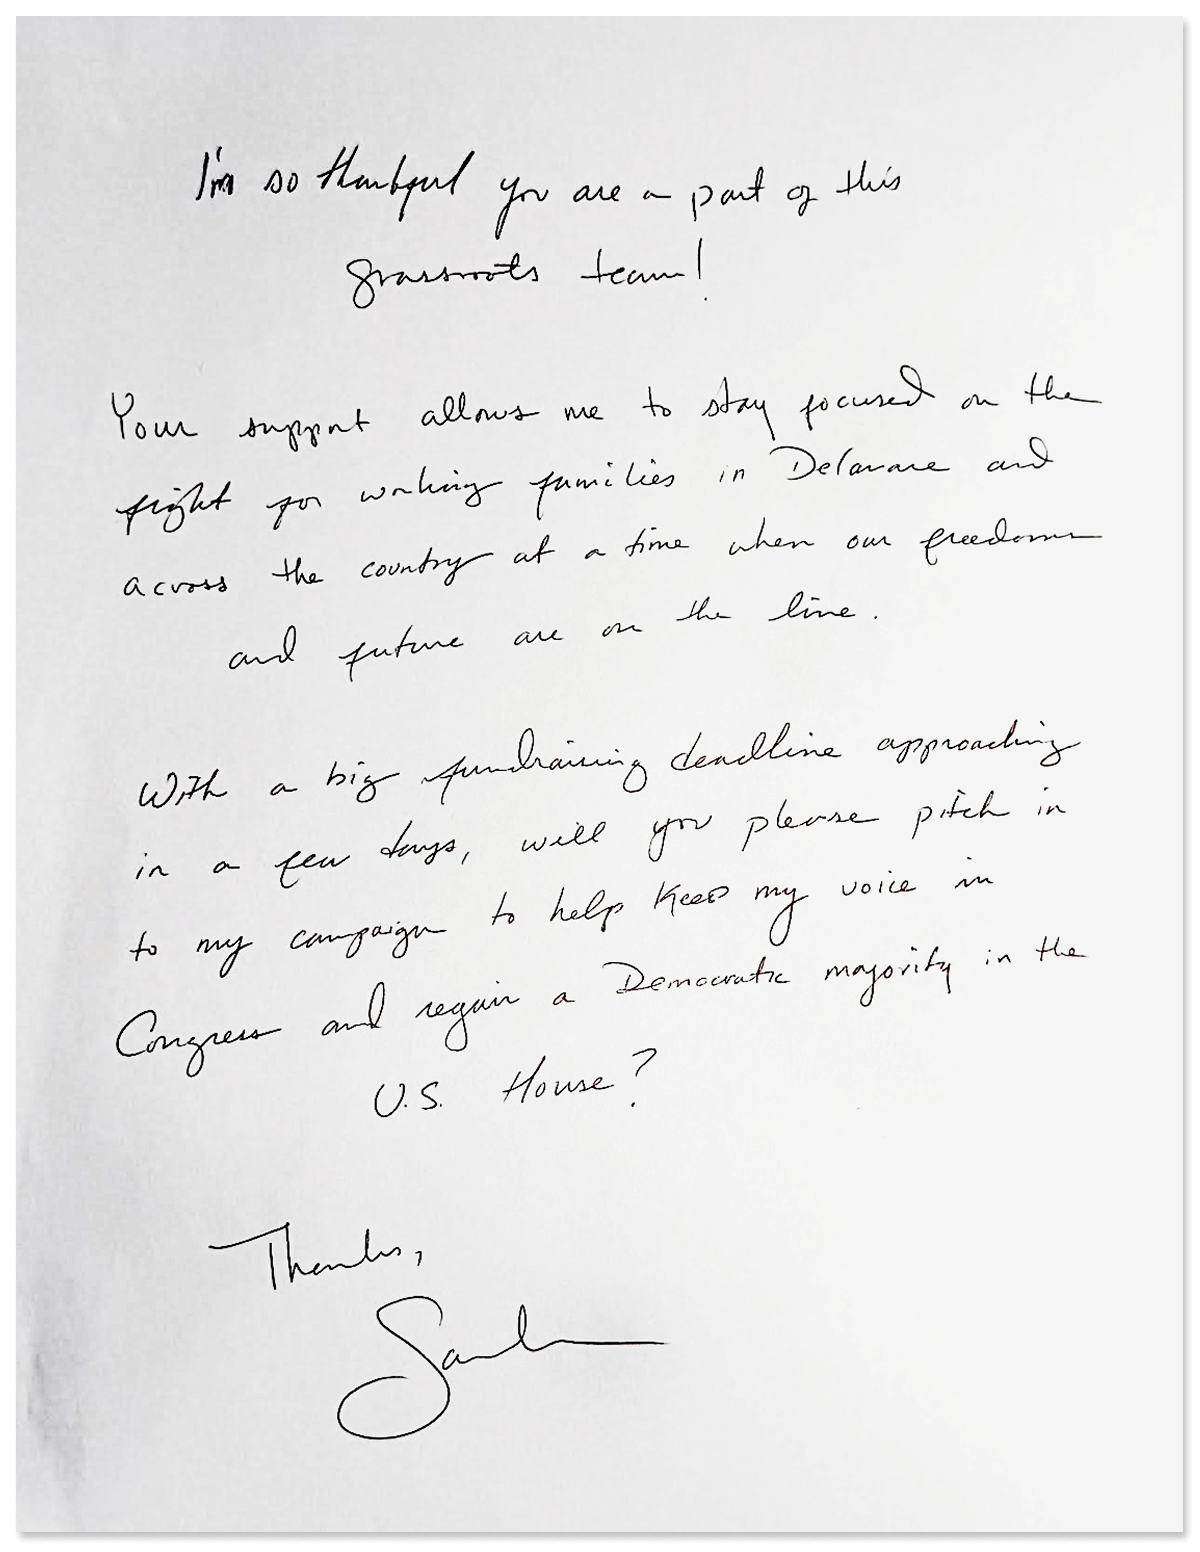 I'm so thankful you are a part of this
grassroots team!
Your support allows me to stay focused on the
fight for working families in Delaware and
across the country at a time when our freedoms
and future are on the line.
With a big fundraising deadline approaching
in a few days, will you please pitch in
to my campaign to help keep my voice in
Congress and regain a Democratic majority in the
U.S. House?
Thanks,
Sarah